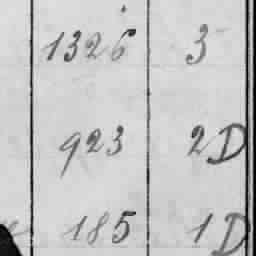 1326 3
923 2D
185 1D